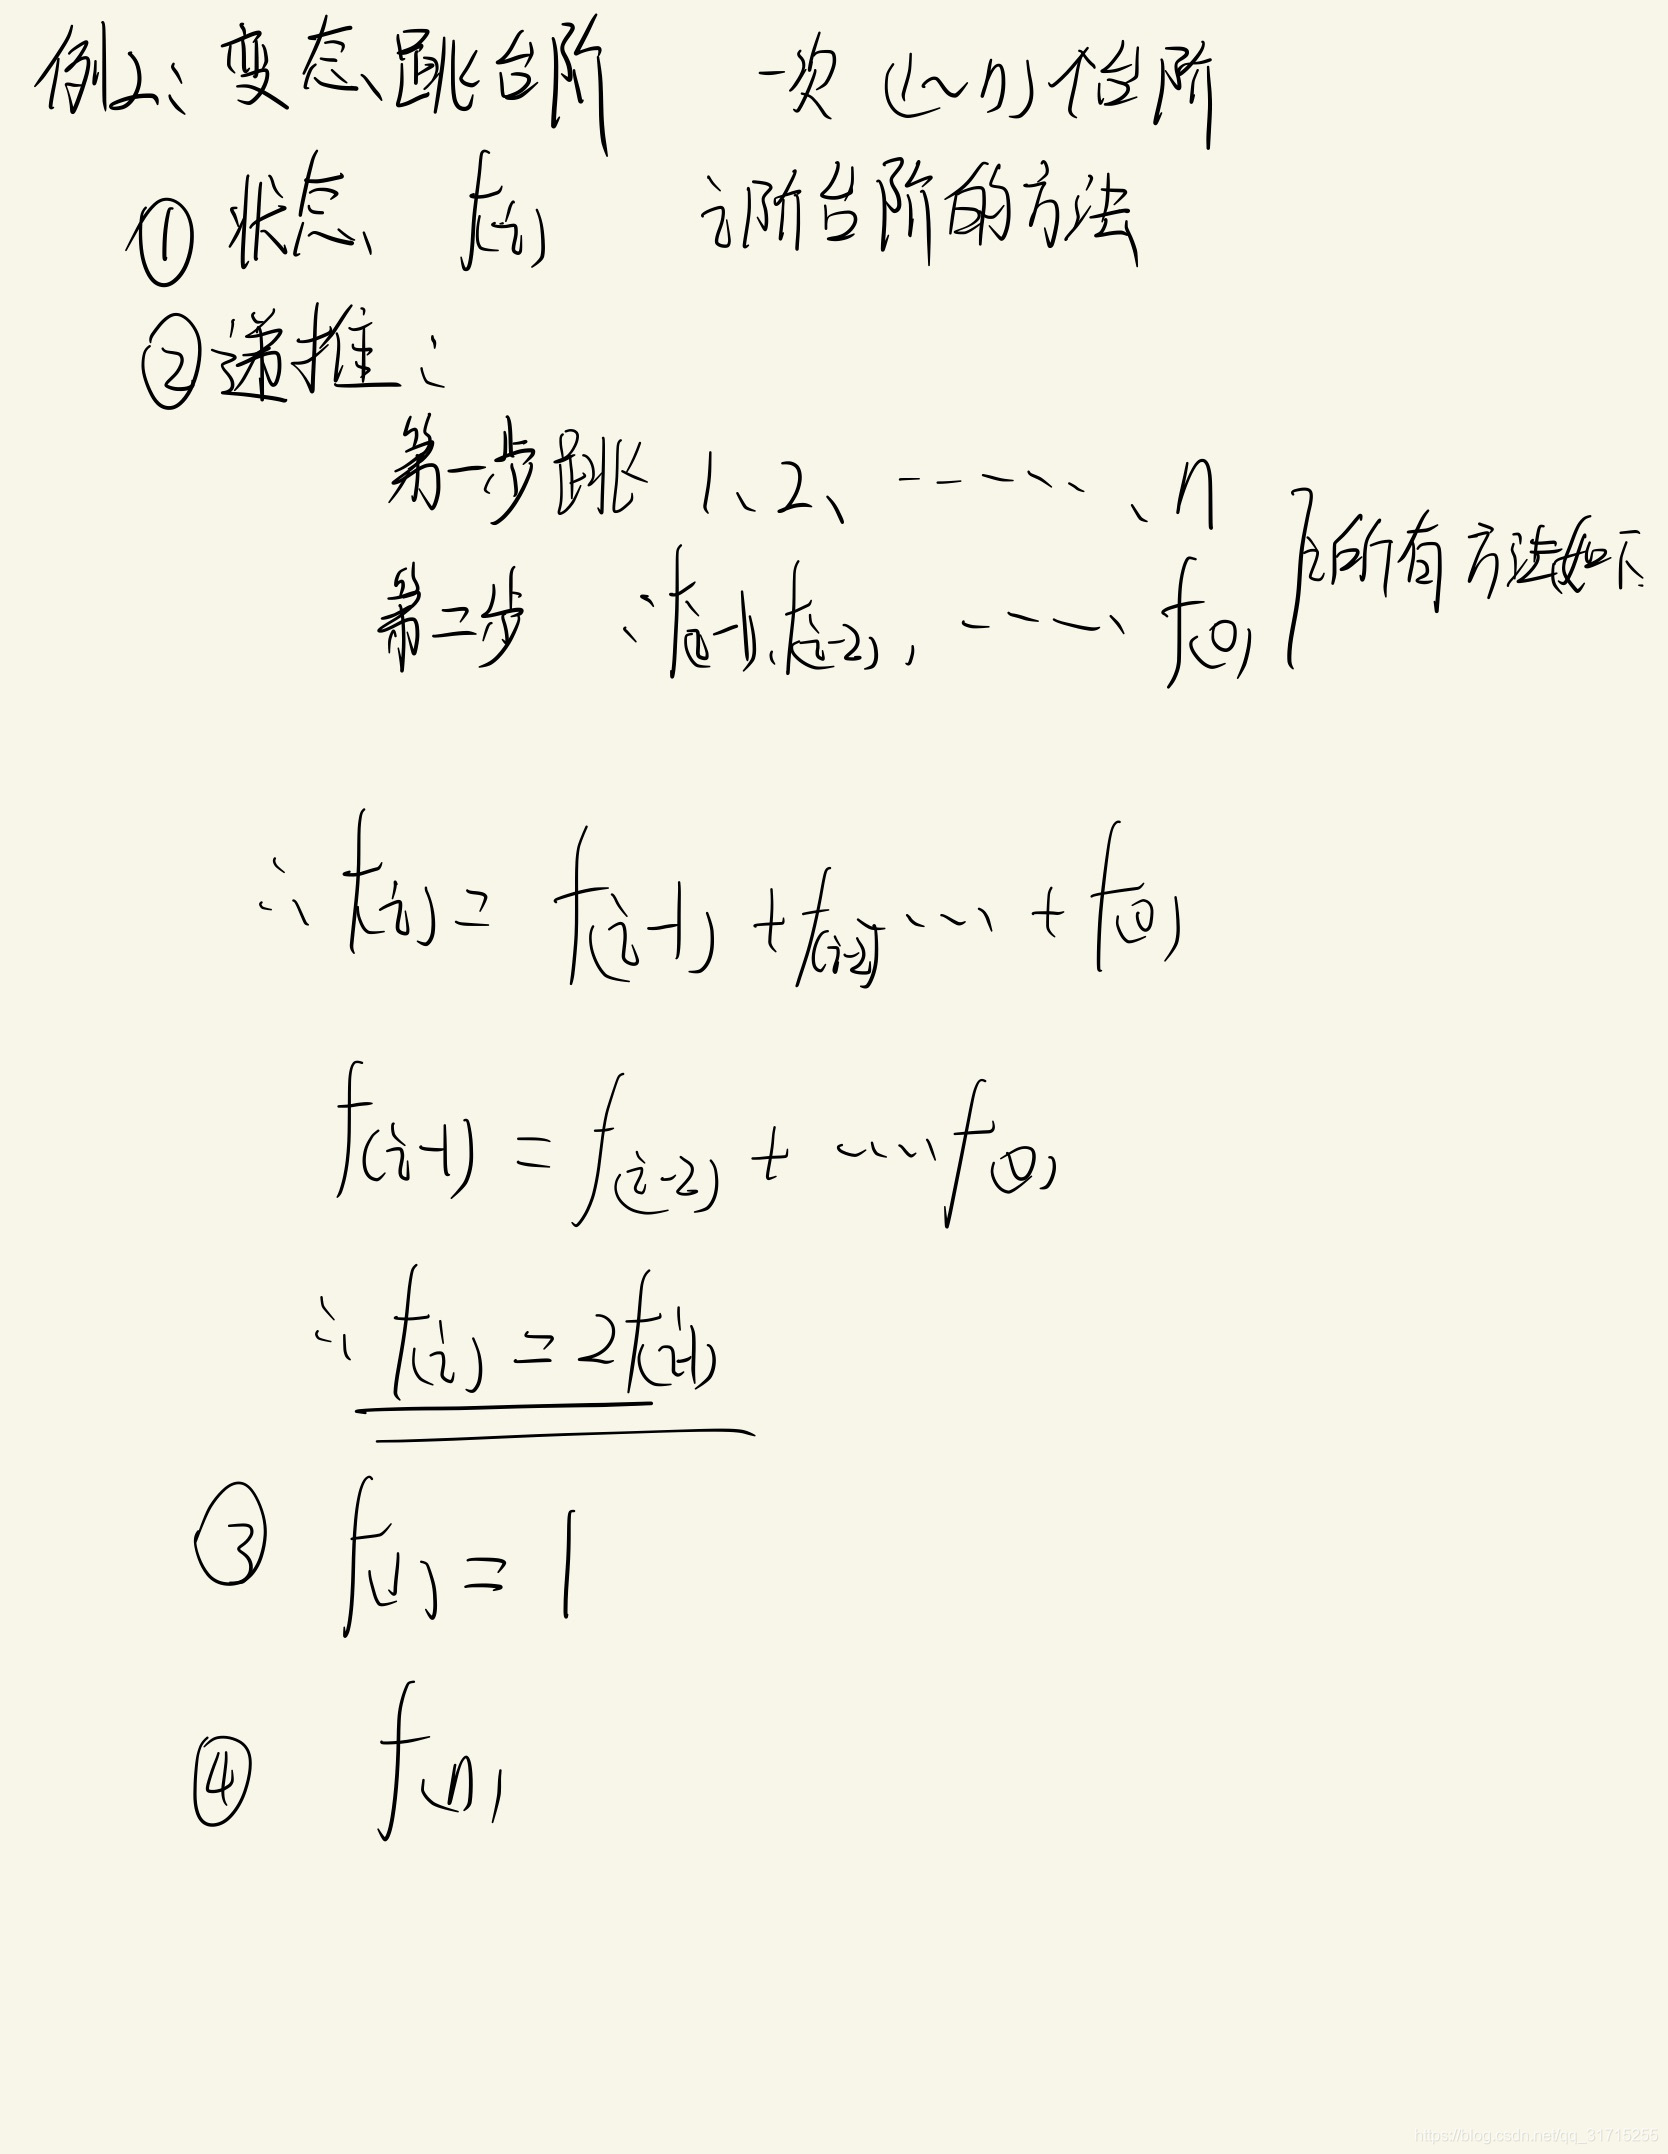 例2: 变态跳台阶 一次(1~n)个台阶
① 状态 f(i) i阶台阶的方法
② 递推:
第一步跳 1、2、……、n
第二步 : f(i-1), f(i-2), …… f(0) } 的所有方法如下
∴ f(i) = f(i-1) + f(i-2) …… + f(0)
f(i-1) = f(i-2) + …… f(0)
∴ f(i) = 2f(i-1)
③ f(1) = 1
④ f(n)
https://blog.csdn.net/qq_31715255